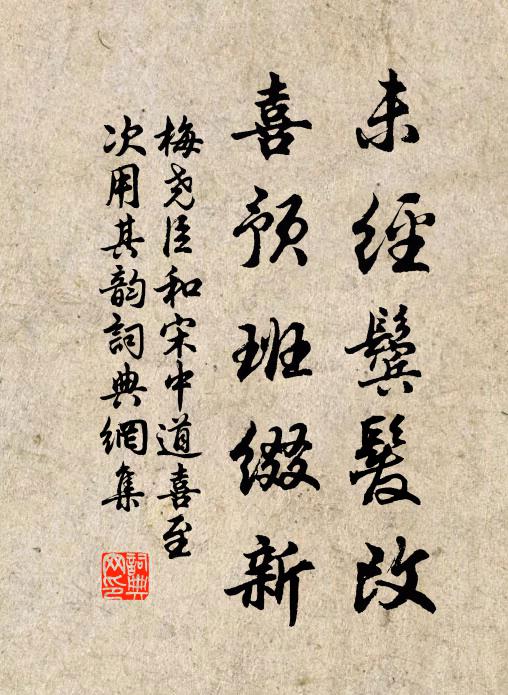 未經鬢髮改
喜預班綴新
梅尧臣和宋中道喜至
次用其韵詞典網集
詞典网印